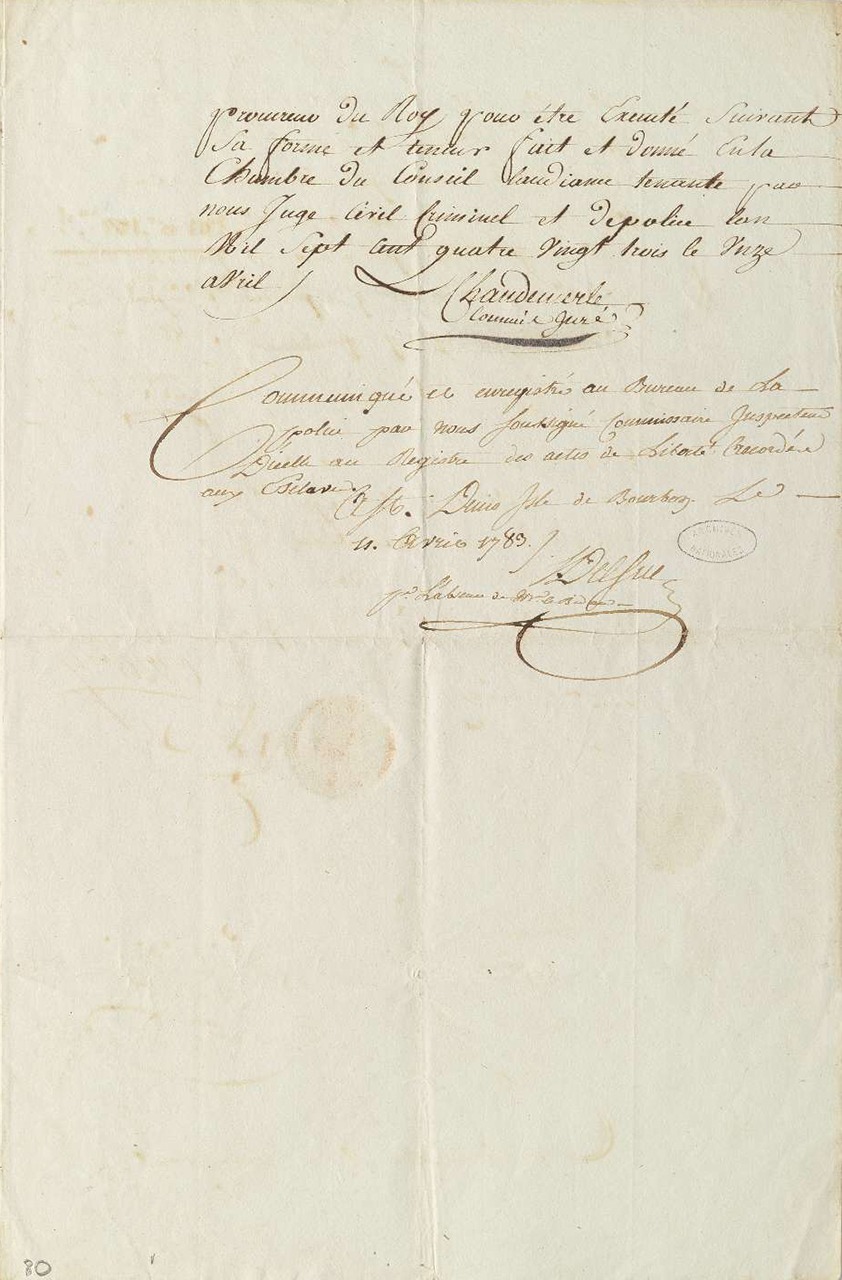 procureur du Roy pour être Executé Suivant
Sa forme et teneur fait et donné En la
Chambre du Conseil laudiance tenante par
nous Juge Civil Criminel et de police Lan
Mil Sept Cent quatre Vingt trois le Unze
avril
Chandemerle
Commis Juré
Communiqué et enregistré au Bureau de La
police par nous soussigné Commissaire Inspecteur
Dicelle au Registre des actes de Liberté accordée
aux Esclaves
A St. Denis Isle de Bourbon Le
11. avril 1783.
Delsue
pr. L'absence de
ARCHIVES
NATIONALES
80